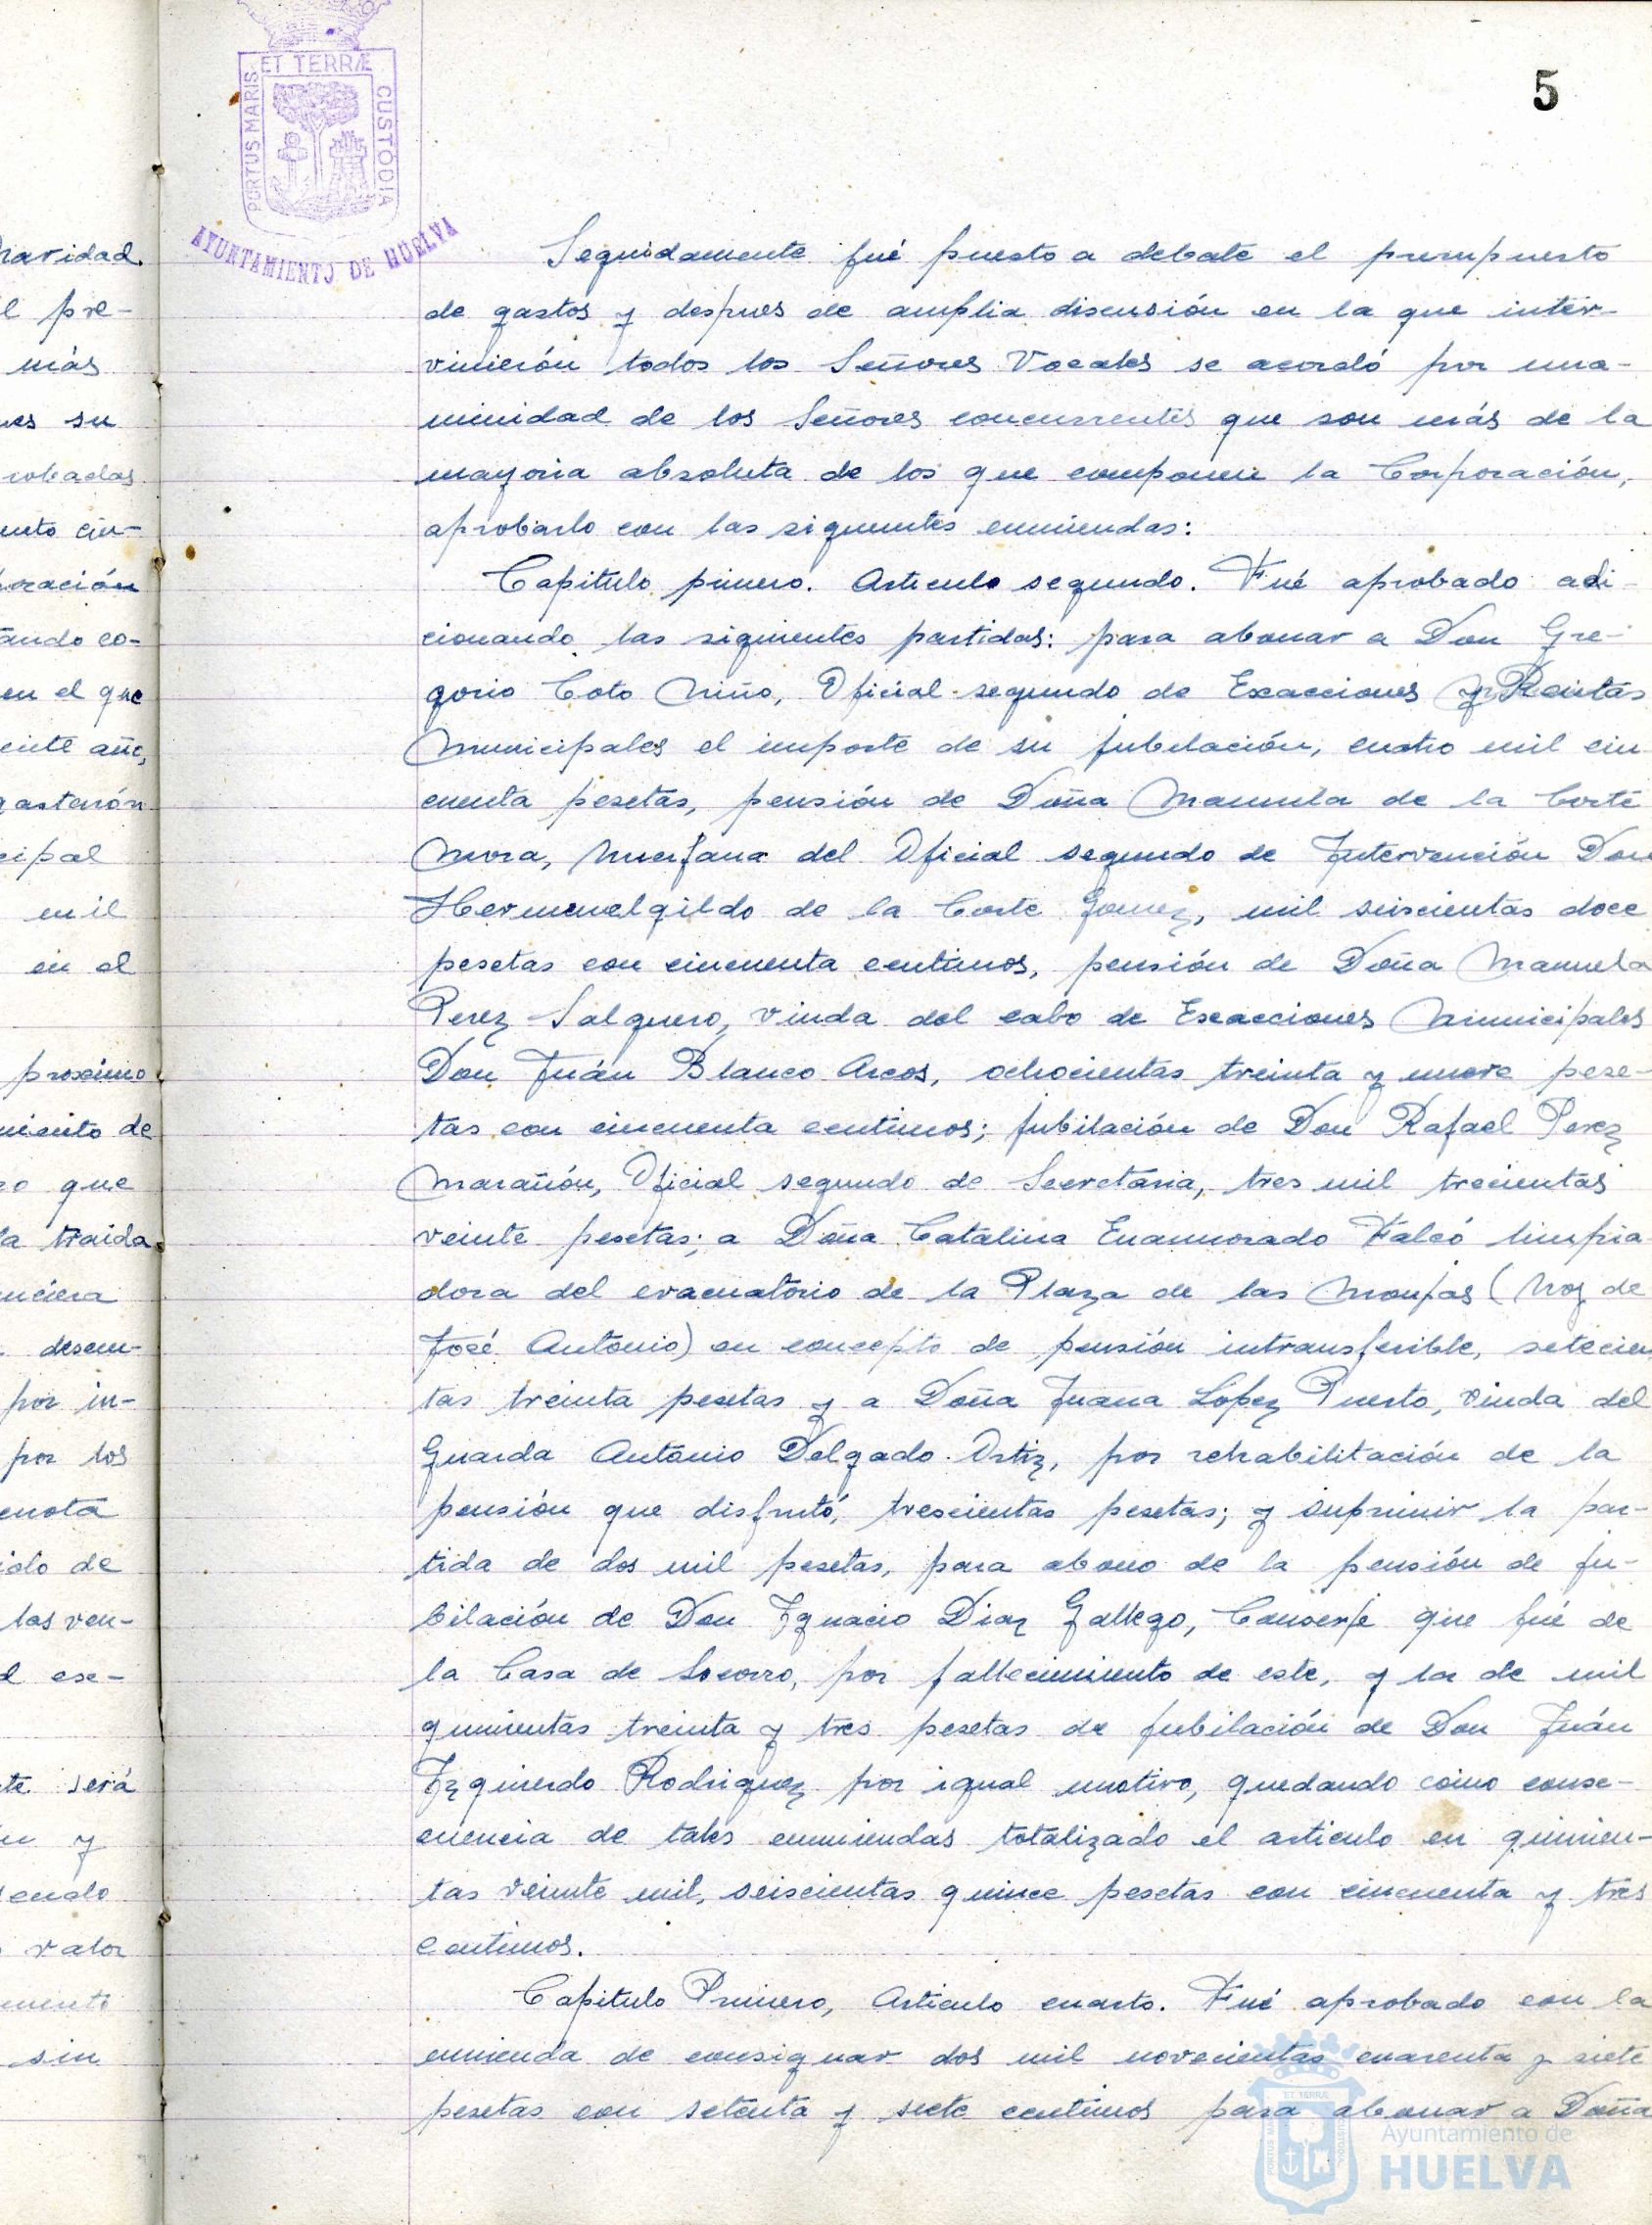 5
ET TERRÆ
PORTUS MARIS
CUSTODIA
AYUNTAMIENTO DE HUELVA
Seguidamente fué puesto a debate el presupuesto
de gastos y despues de amplia discusión en la que inter-
vinierón todos los Señores Vocales se acordó por una-
nimidad de los Señores concurrentes que son más de la
mayoria absoluta de los que componen la Corporación,
aprobarlo con las siguientes enmiendas:
Capitulo primero. Articulo segundo. Fué aprobado adi-
cionando las siguientes partidas: para abonar a Don Gre-
gorio Coto Niño, Oficial segundo de Exacciones y Rentas
Municipales el importe de su jubilación, cuatro mil cin
cuenta pesetas, pensión de Doña Manuela de la Corte
Mora, huerfana del Oficial segundo de Intervención Don
Hermenelgildo de la Corte Gomez, mil seiscientas doce
pesetas con cincuenta centimos, pensión de Doña Manuela
Perez Salguero, viuda del cabo de Exacciones Municipales
Don Juán Blanco Arcos, ochocientas treinta y nueve pese-
tas con cincuenta centimos; jubilación de Don Rafael Perez
Marañón, Oficial segundo de Secretaria, tres mil trecientas
veinte pesetas; a Doña Catalina Enamorado Falcó limpia-
dora del evacuatorio de la Plaza de las Monjas (hoy de
José Antonio) en concepto de pensión intransferible, setecien
tas treinta pesetas y a Doña Juana Lopez Puerto, viuda del
Guarda Antonio Delgado Ortiz, por rehabilitación de la
pensión que disfrutó, trescientas pesetas; y suprimir la par-
tida de dos mil pesetas, para abono de la pensión de ju-
bilación de Don Ignacio Diaz Gallego, Conserje que fué de
la Casa de Socorro, por fallecimiento de este, y la de mil
quinientas treinta y tres pesetas de jubilación de Don Juán
Izquierdo Rodriguez por igual motivo, quedando como conse-
cuencia de tales enmiendas totalizado el articulo en quinien-
tas veinte mil, seiscientas quince pesetas con cincuenta y tres
centimos.
Capitulo Primero, Articulo cuarto. Fué aprobado con la
enmienda de consignar dos mil novecientas cuarenta y siete
pesetas con setenta y siete centimos para abonar a Doña
Ayuntamiento de
HUELVA